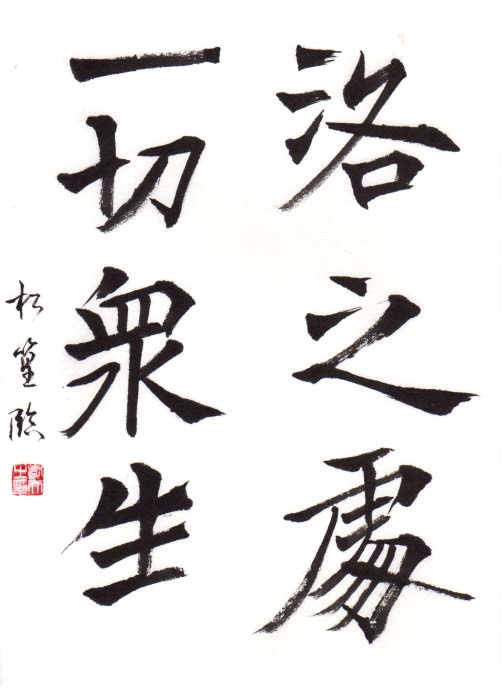 洛之處
一切衆生
松篁臨